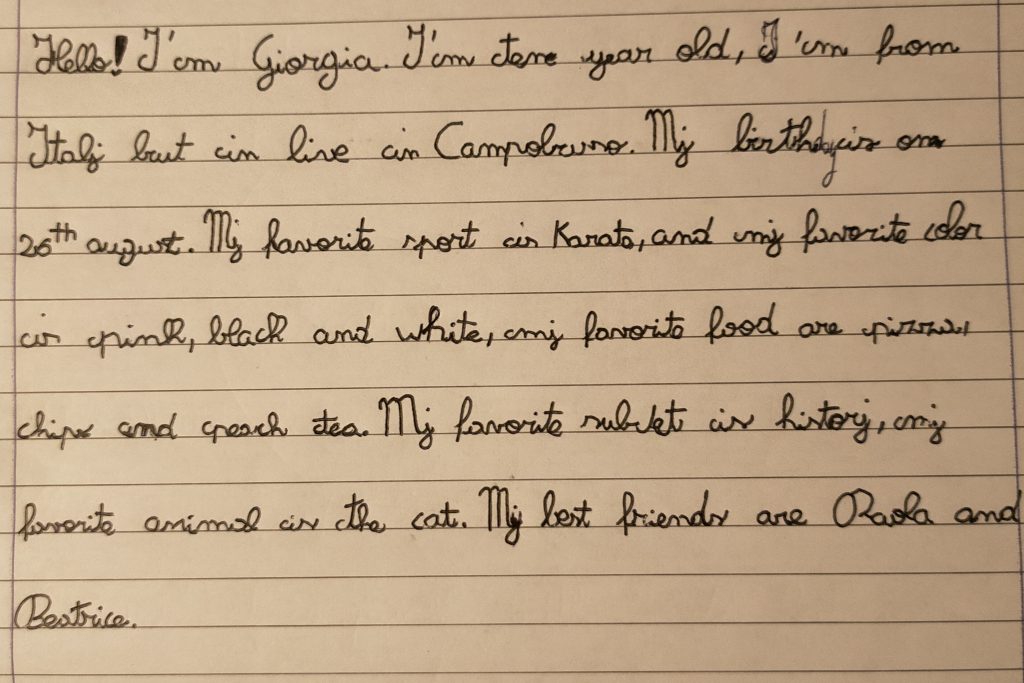 Hello! I'm Giorgia. I'm tene year old, I'm from
Italy but in live in Campobasso. My birthday is on
26th august. My favorite sport is Karate, and my favorite color
is pink, black and white, my favorite food are pizza,
chips and peach tea. My favorite subject is history, my
favorite animal is the cat. My best friends are Paola and
Beatrice.